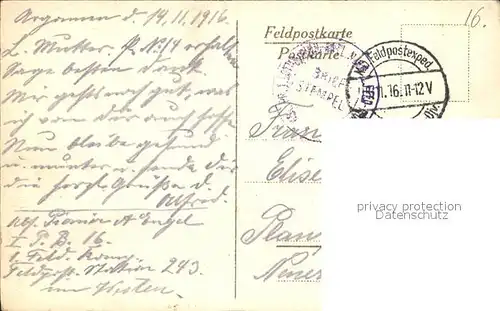 Argonnen d. 14.11.1916.
L. Mutter. P. No 14 erhalten
Sage besten Dank.
Mir geht noch gut, was
ich von dir auch hoffe
Nun bleibe gesund
u. munter u. sende dir
die herzl. Grüße d.
Alfred.
Abs. Pionier A. Engel
I. P. B. 16.
1. Feld. Komp.
Feldpost Station 243.
im Westen.
16.
Feldpostkarte
Postkarte
BRIEF
STEMPEL
Feldpostexped.
11.16. 11-12V
Frau
Elise
privacy protection
Datenschutz